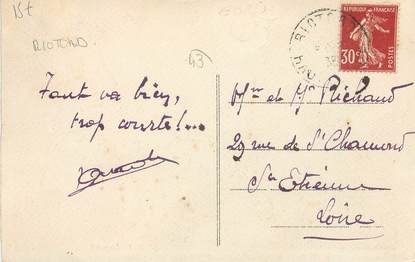 15t
RIOTORD.
43
RIOTOR
REPUBLIQUE FRANÇAISE
30c
POSTES
Tout va bien,
trop courte!...
Mme et Mr Richaud
29 rue de St Chamond
St Etienne
Loire